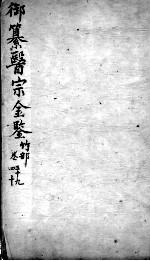 御纂醫宗金鑒
竹部
卷四十九